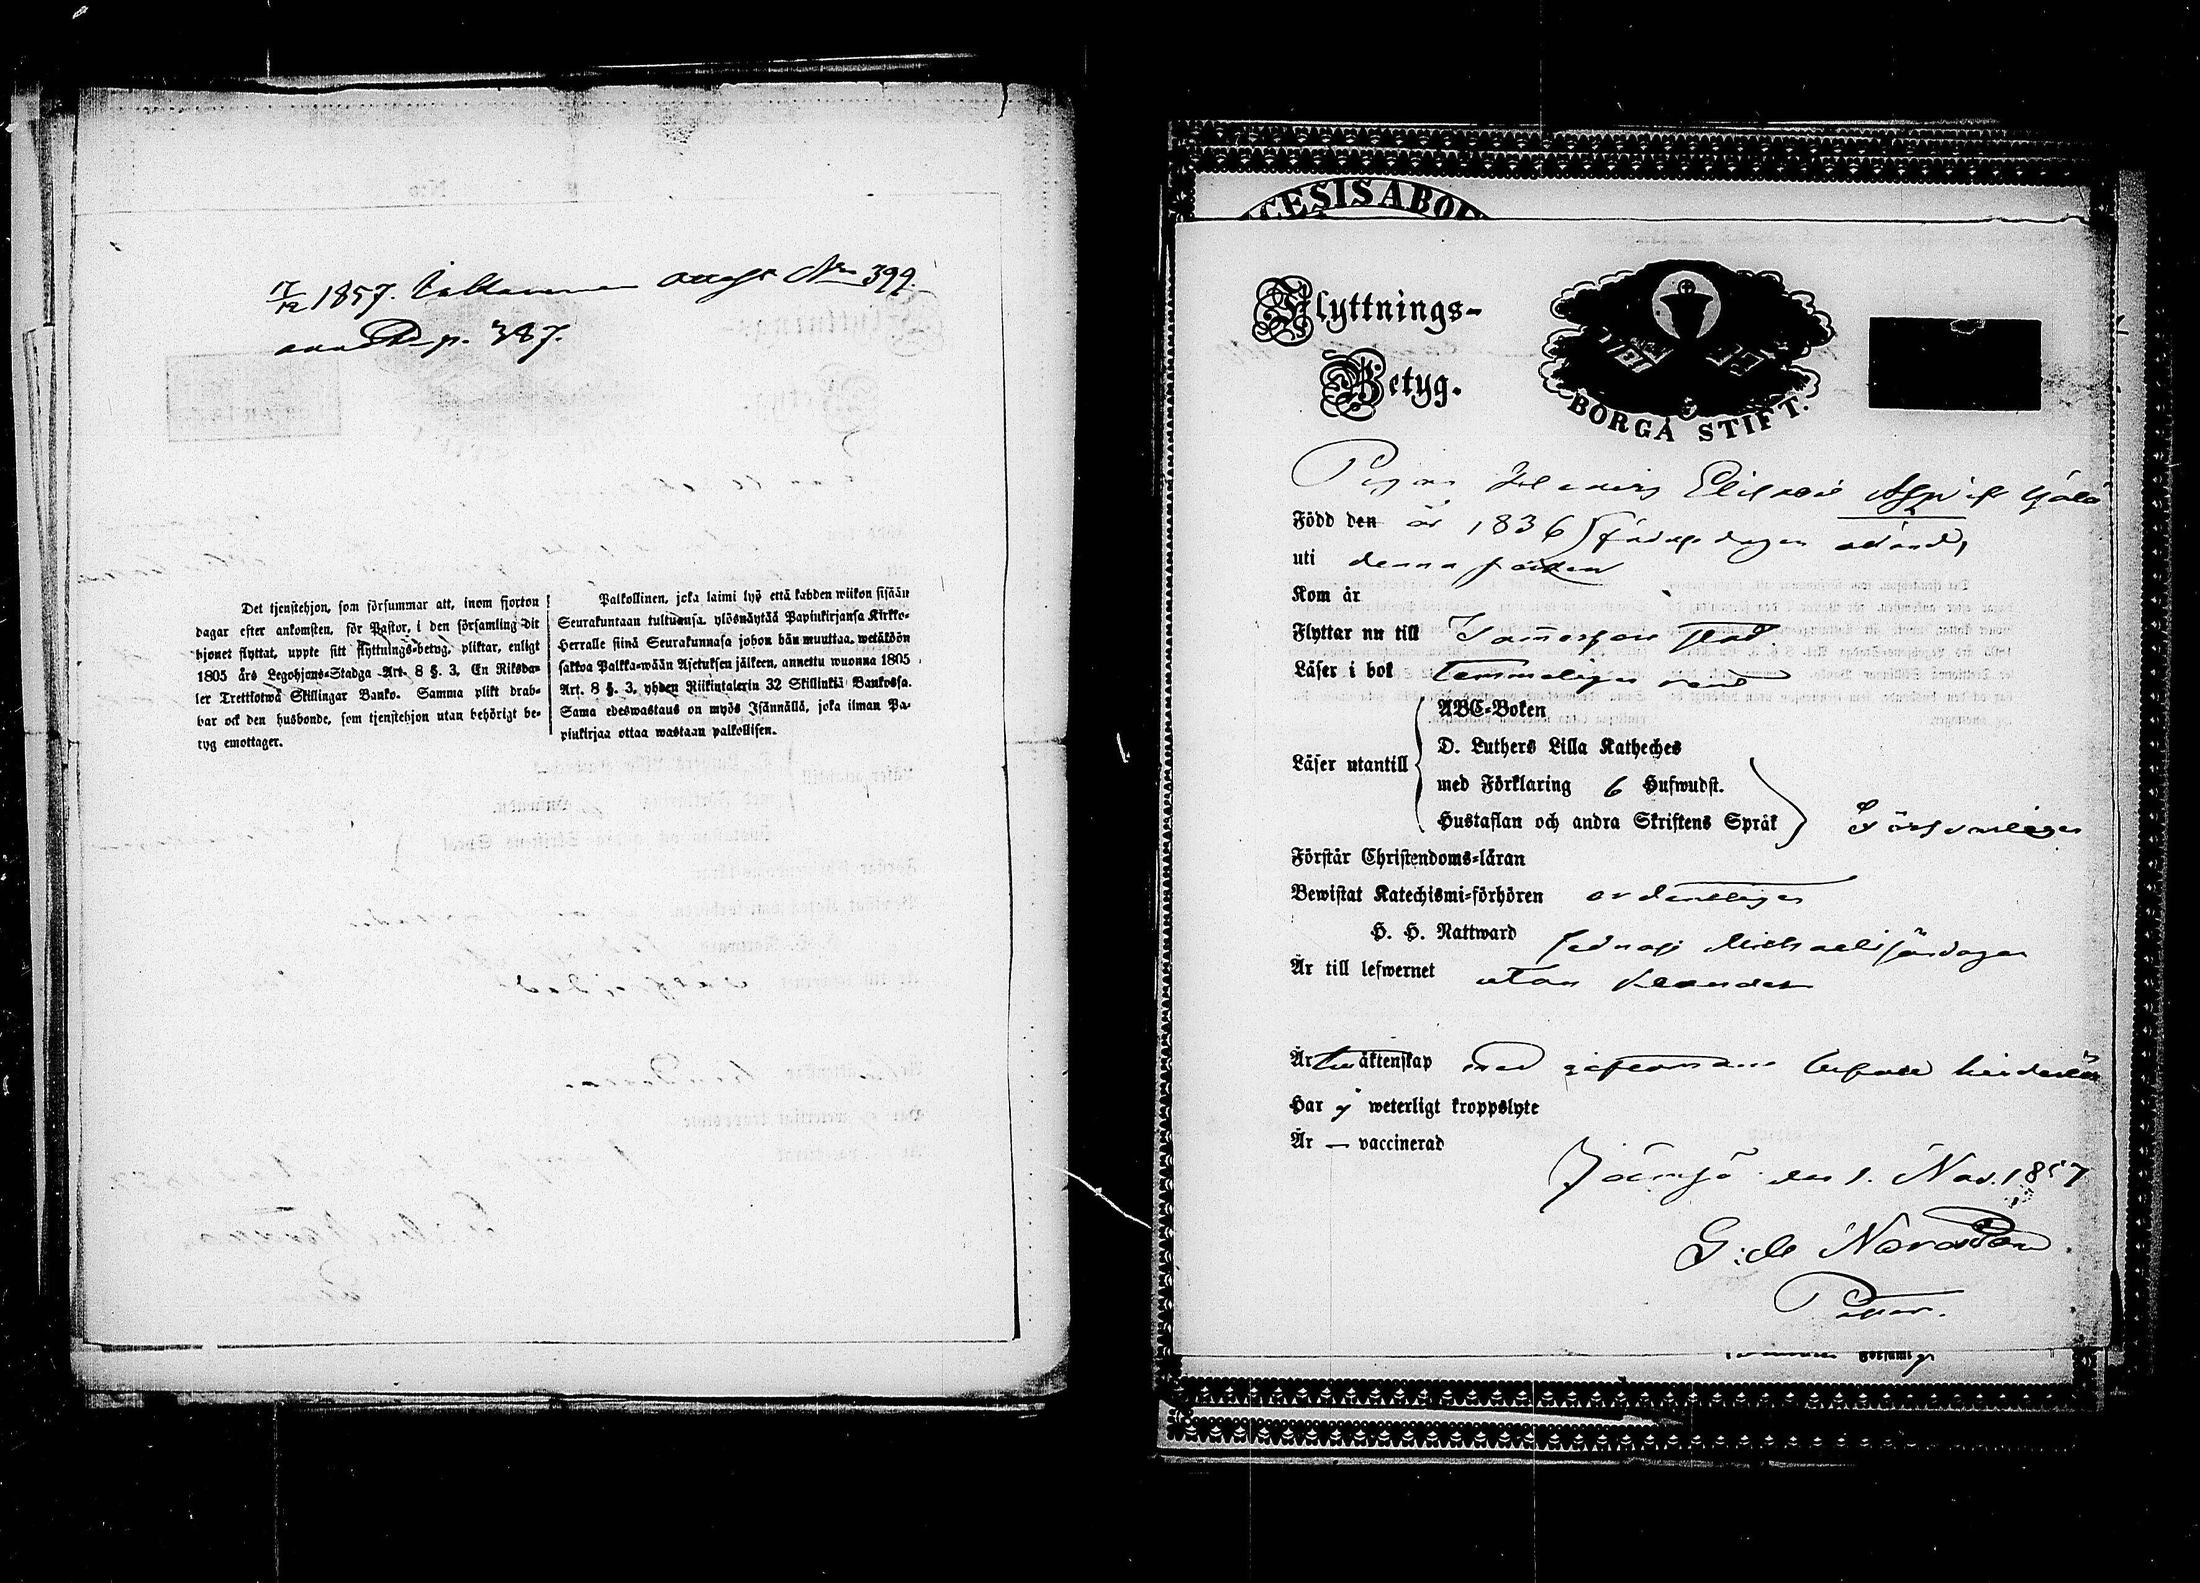 17/12 1857. attest No 399.
p. 387.
Det tjenstehjon, som försummar att, inom fjorton
dagar efter ankomsten, för Pastor, i den församling dit
hjonet flyttat, uppte sitt flyttnings-betyg, pliktar, enligt
1805 års Legohjons-Stadga Art. 8 §. 3, En Riksda-
ler Trettiotwå Skillingar Banko. Samma plikt drab-
bar ock den husbonde, som tjenstehjon utan behörigt be-
tyg emottager.
Palkollinen, joka laimi lyö että kahden wiikon sisään
Seurakuntaan tultuansa, ylösnäytää Papinkirjansa Kirkko-
Herralle siinä Seurakunnasa johon hän muuttaa, wetäköön
sakkoa Palkka-wään Asetuksen jälkeen, annettu wuonna 1805
Art. 8 §. 3, yhden Riikintalerin 32 Skillinkiä Bankossa.
Sama edeswastaus on myös Isännällä, joka ilman Pa-
pinkirjaa ottaa wastaan palkollisen.
CESIS ABO
Flyttnings-
Betyg.
BORGÅ STIFT.
Pigan
Född den år 1836
uti denna
Kom år
Flyttar nu till Tammerfors stad
Läser i bok temmeligen
ABC-Boken
D. Luthers Lilla Katheches
Läser utantill
med Förklaring 6 Hufwudst.
Hustaflan och andra Skriftens Språk
Förswarligen
Förstår Christendoms-läran
Bewistat Katechismi-förhören ordentligen
H. H. Nattward sednast Michaelisöndagen
Är till lefwernet utan klander
Är till äktenskap med hinderlös
Har ej weterligt kroppslyte
Är — vaccinerad
Jämsä den 1. Nov. 1857
Pastor.